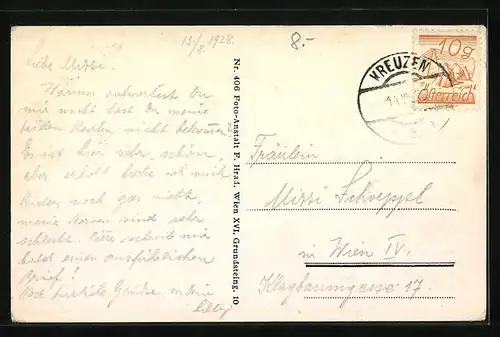 13/8. 1928.
8.-
Liebe Mizzi!
Warum antwortest Du
mir nicht hast Du meine
beiden Karten nicht bekommen
Es ist hier sehr schön,
aber erholt habe ich mich
leider noch gar nicht,
meine Nerven sind sehr
schlecht. Bitte schreibe mir
bald einen ausführlichen
Brief!
Nr. 406 Foto-Anstalt F. Hrad. Wien XVI. Grundsteing. 10
KREUZEN
10g
Österreich
Fräulein
Mizzi Schoeppel
in Wien IV.
Klagbaumgasse 17.